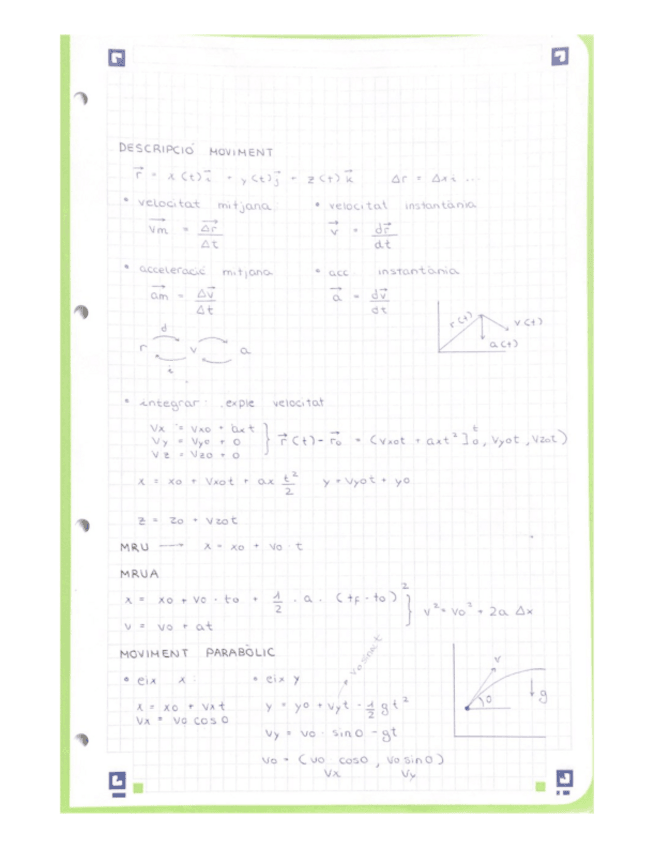 DESCRIPCIÓ MOVIMENT
r⃗ = x(t)i⃗ + y(t)j⃗ + z(t)k⃗ Δr = Δxi ...
• velocitat mitjana • velocitat instantània
vm⃗ = Δr⃗/Δt v⃗ = dr⃗/dt
• acceleració mitjana • acc instantània
am⃗ = Δv⃗/Δt a⃗ = dv⃗/dt
r(t) v(t)
a(t)
d
r v a
i
• integrar: exple velocitat
Vx = Vxo + axt
Vy = Vyo + 0 } r⃗(t) - r⃗o = (Vxot + axt²]ᵗ₀, Vyot, Vzot)
Vz = Vzo + 0
x = xo + Vxot + ax t²/2 y = Vyot + yo
z = zo + Vzot
MRU → x = xo + vo · t
MRUA
x = xo + vo · to + 1/2 · a · (tf - to)² } v² = vo² + 2a Δx
v = vo + at
MOVIMENT PARABÒLIC
• eix x: • eix y
x = xo + vxt y = yo + vyt - 1/2 gt²
Vx = Vo cos0 Vy = vo · sin0 - gt
v
0 g
vo = (vo cos0, vo sin0)
Vx Vy